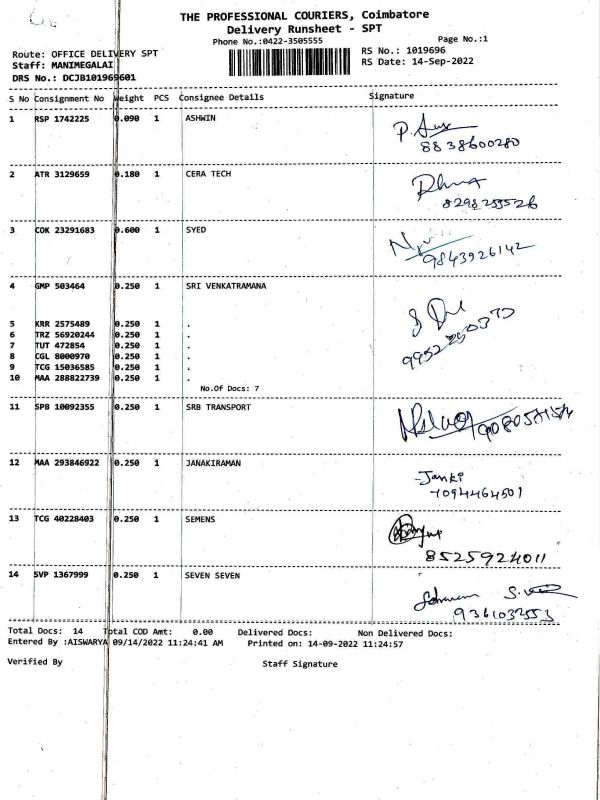 THE PROFESSIONAL COURIERS, Coimbatore
Delivery Runsheet - SPT
Phone No.:0422-3505555 Page No.:1
Route: OFFICE DELIVERY SPT RS No.: 1019696
Staff: MANIMEGALAI RS Date: 14-Sep-2022
DRS No.: DCJB101969601
S No Consignment No Weight PCS Consignee Details Signature
1 RSP 1742225 0.090 1 ASHWIN
8838600280
2 ATR 3129659 0.180 1 CERA TECH
8298255526
3 COK 23291683 0.600 1 SYED
9843926142
4 GMP 503464 0.250 1 SRI VENKATRAMANA
5 KRR 2575489 0.250 1 .
6 TRZ 56920244 0.250 1 .
7 TUT 472854 0.250 1 .
8 CGL 8000970 0.250 1 .
9 TCG 15036585 0.250 1 .
10 MAA 288822739 0.250 1 .
No.Of Docs: 7
11 SPB 10092355 0.250 1 SRB TRANSPORT
12 MAA 293846922 0.250 1 JANAKIRAMAN
Janki
7094464501
13 TCG 40228403 0.250 1 SEMENS
8525924011
14 SVP 1367999 0.250 1 SEVEN SEVEN
9361032553
Total Docs: 14 Total COD Amt: 0.00 Delivered Docs: Non Delivered Docs:
Entered By :AISWARYA 09/14/2022 11:24:41 AM Printed on: 14-09-2022 11:24:57
Verified By Staff Signature